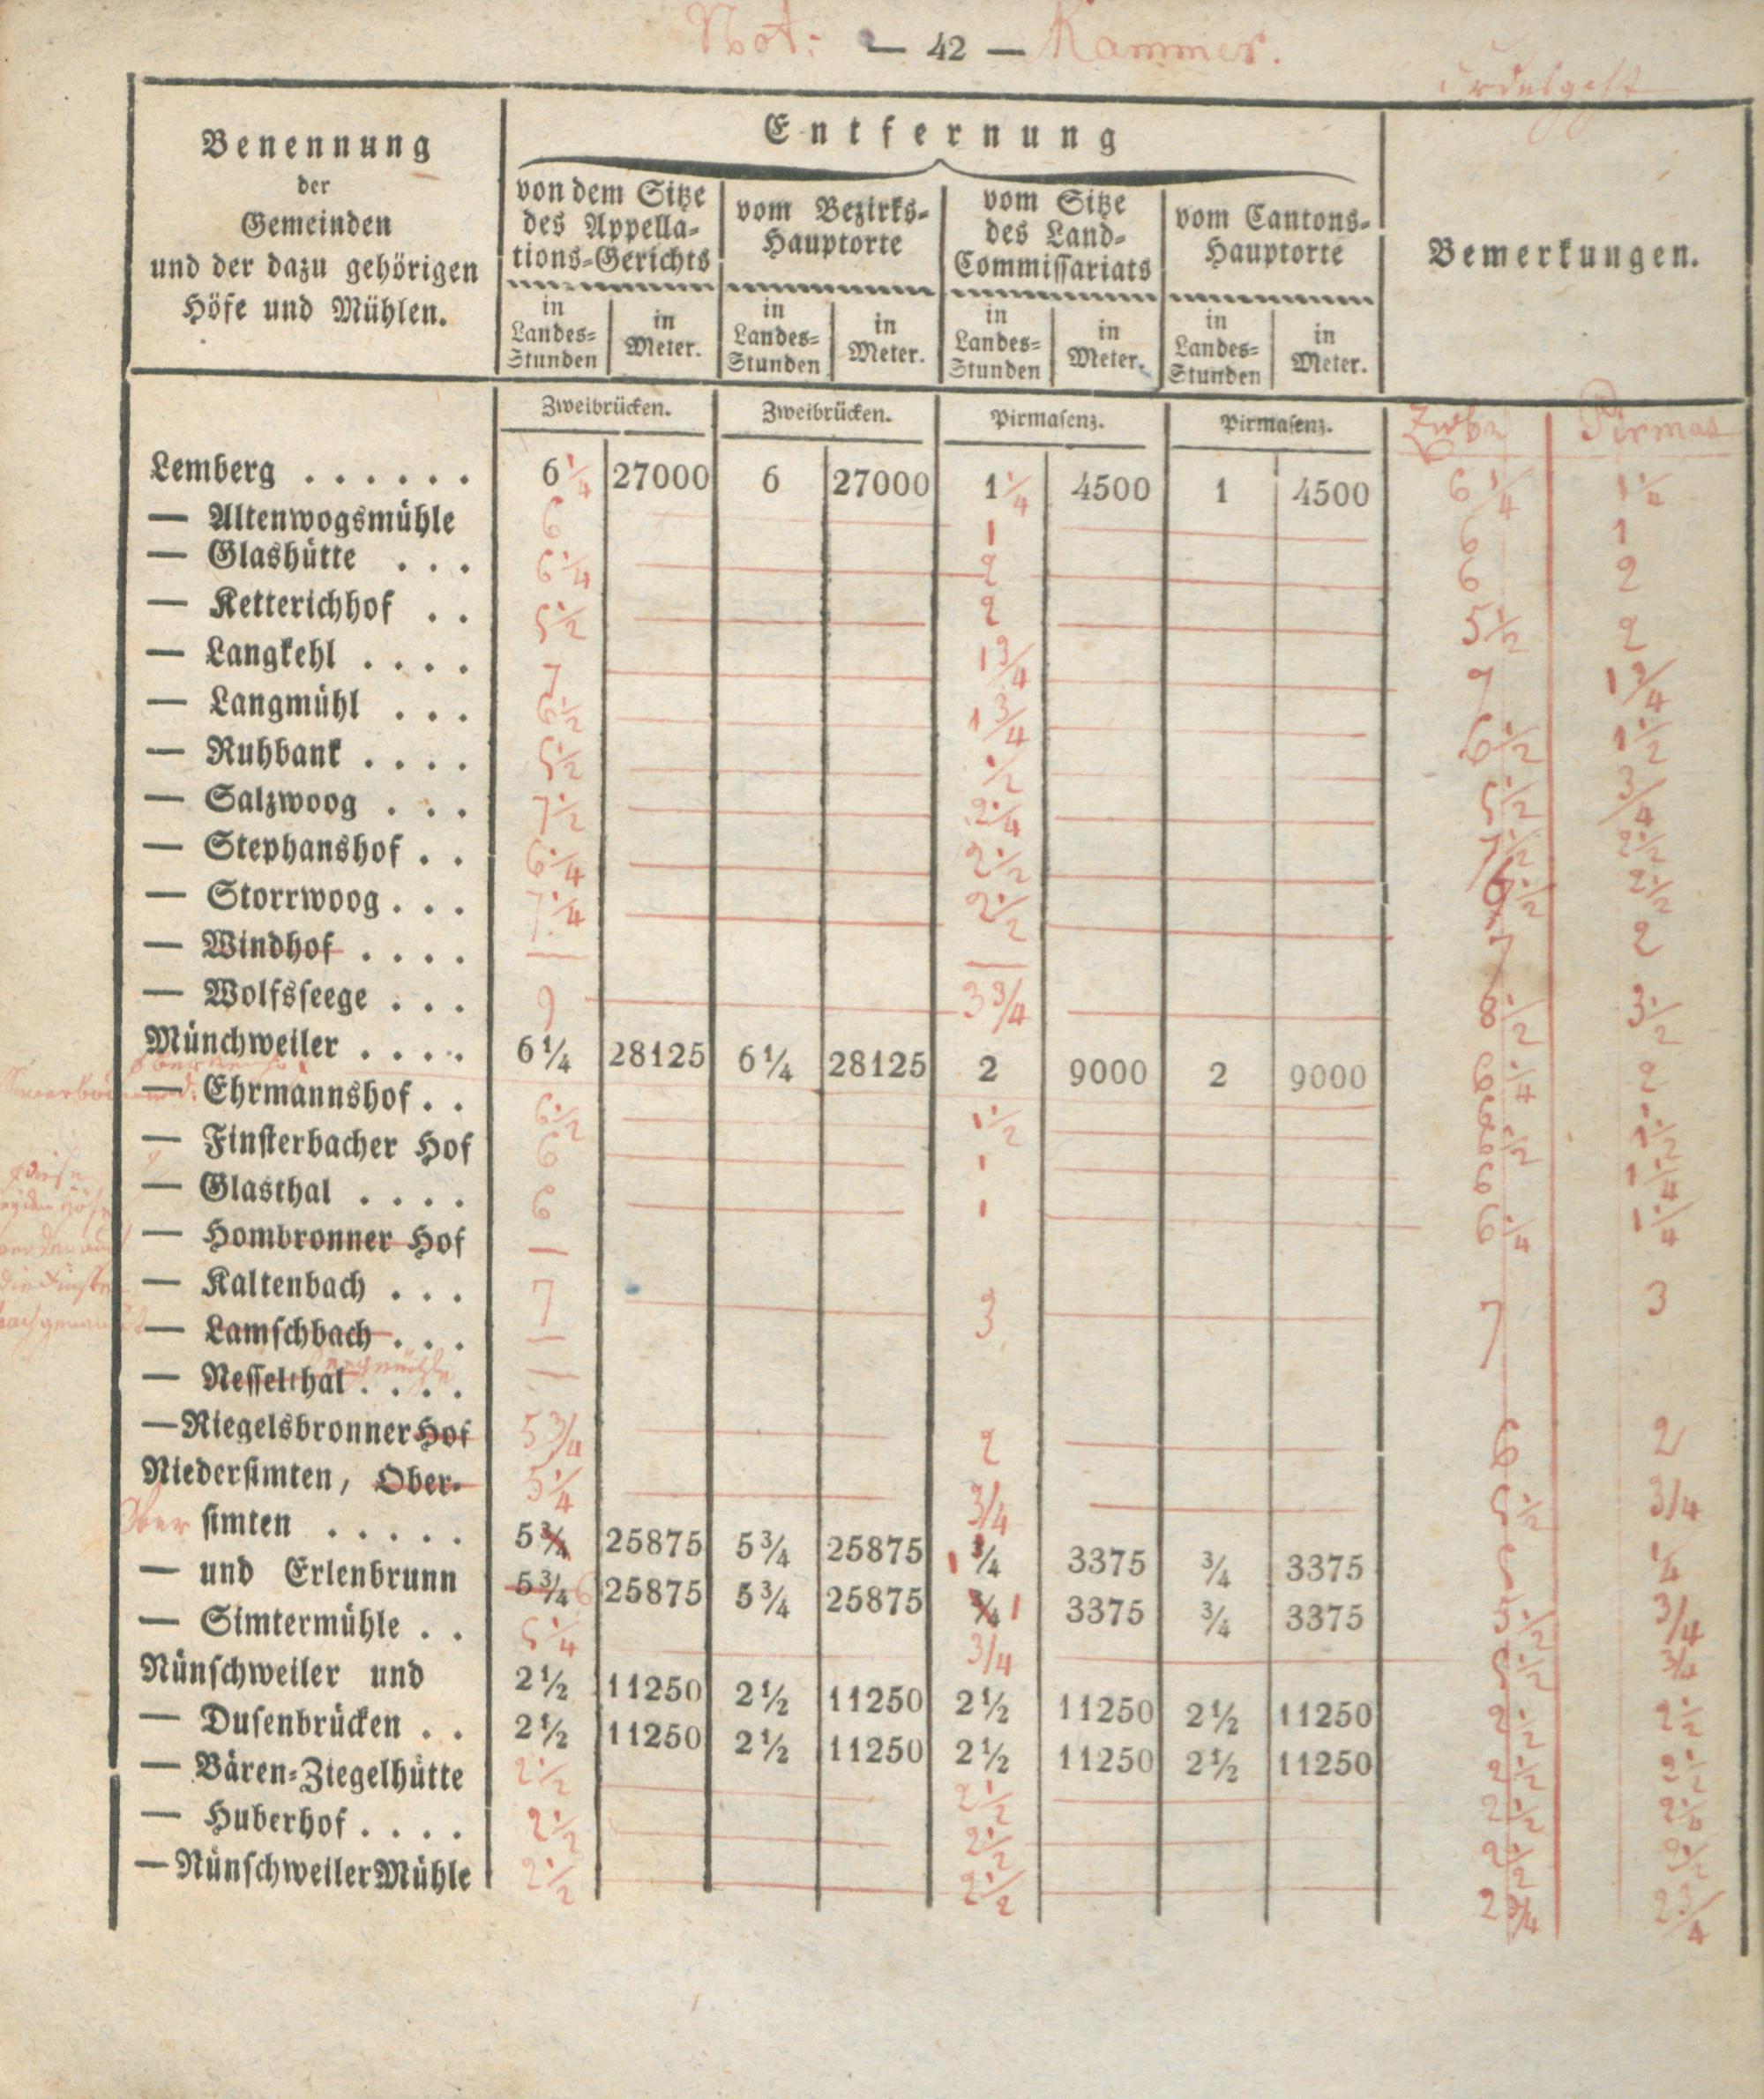 Not: — 42 — Kammer.
Benennung
der
Gemeinden
und der dazu gehörigen
Höfe und Mühlen.
Entfernung
von dem Sitze
des Appella-
tions-Gerichts
vom Bezirks-
Hauptorte
vom Sitze
des Land-
Commissariats
vom Cantons-
Hauptorte
Bemerkungen.
in Landes-Stunden | in Meter. | in Landes-Stunden | in Meter. | in Landes-Stunden | in Meter. | in Landes-Stunden | in Meter.
Zweibrücken. | Zweibrücken. | Pirmasenz. | Pirmasenz. | Zwbr | Pirmas
Lemberg . . . . . . 6 1/4 27000 6 27000 1 1/4 4500 1 4500 6 1/4 1 1/4
— Altenwogsmühle 6 1 6 1
— Glashütte . . . 6 1/4 2 6 2
— Ketterichhof . . 5 1/2 2 5 1/2 2
— Langkehl . . . . 7 1 3/4 7 1 3/4
— Langmühl . . . 6 1/2 1 3/4 6 1/2 1 1/2
— Ruhbank . . . . 5 1/2 1/2 5 1/2 3/4
— Salzwoog . . . 7 1/2 2 1/4 7 1/2 2 1/2
— Stephanshof . . 6 1/4 2 1/2 6 1/2 2 1/2
— Storrwoog . . . 7 1/4 2 1/2 7 2
— Windhof . . . . — —
— Wolfsseege . . . 9 3 3/4 8 1/2 3 1/2
Münchweiler . . . . 6 1/4 28125 6 1/4 28125 2 9000 2 9000 6 1/4 2
— Ehrmannshof . . 6 1/2 1 1/2 6 1/2 1 1/2
— Finsterbacher Hof 6 1 6 1 1/4
— Glasthal . . . . 6 1 6 1/4 1 1/4
— Hombronner Hof —
— Kaltenbach . . . 7 3 7 3
— Lamschbach . . . —
— Nesselthal . . . . —
— Riegelsbronner Hof 5 3/4 2 6 2
Niedersimten, Ober- 5 1/4 3/4 5 1/2 3/4
Ober simten . . . . . 5 3/4 25875 5 3/4 25875 1 3/4 3375 3/4 3375 5 1/4
— und Erlenbrunn 5 3/4 6 25875 5 3/4 25875 3/4 1 3375 3/4 3375 5 1/2 3/4
— Simtermühle . . 5 1/4 3/4 5 1/2 3/4
Nünschweiler und 2 1/2 11250 2 1/2 11250 2 1/2 11250 2 1/2 11250 2 1/2 2 1/2
— Dusenbrücken . . 2 1/2 11250 2 1/2 11250 2 1/2 11250 2 1/2 11250 2 1/2 2 1/2
— Bären-Ziegelhütte 2 1/2 2 1/2 2 1/2
— Huberhof . . . . 2 1/2 2 1/2 2 1/2 2 1/2
— Nünschweiler Mühle 2 1/2 2 1/2 2 3/4 2 3/4